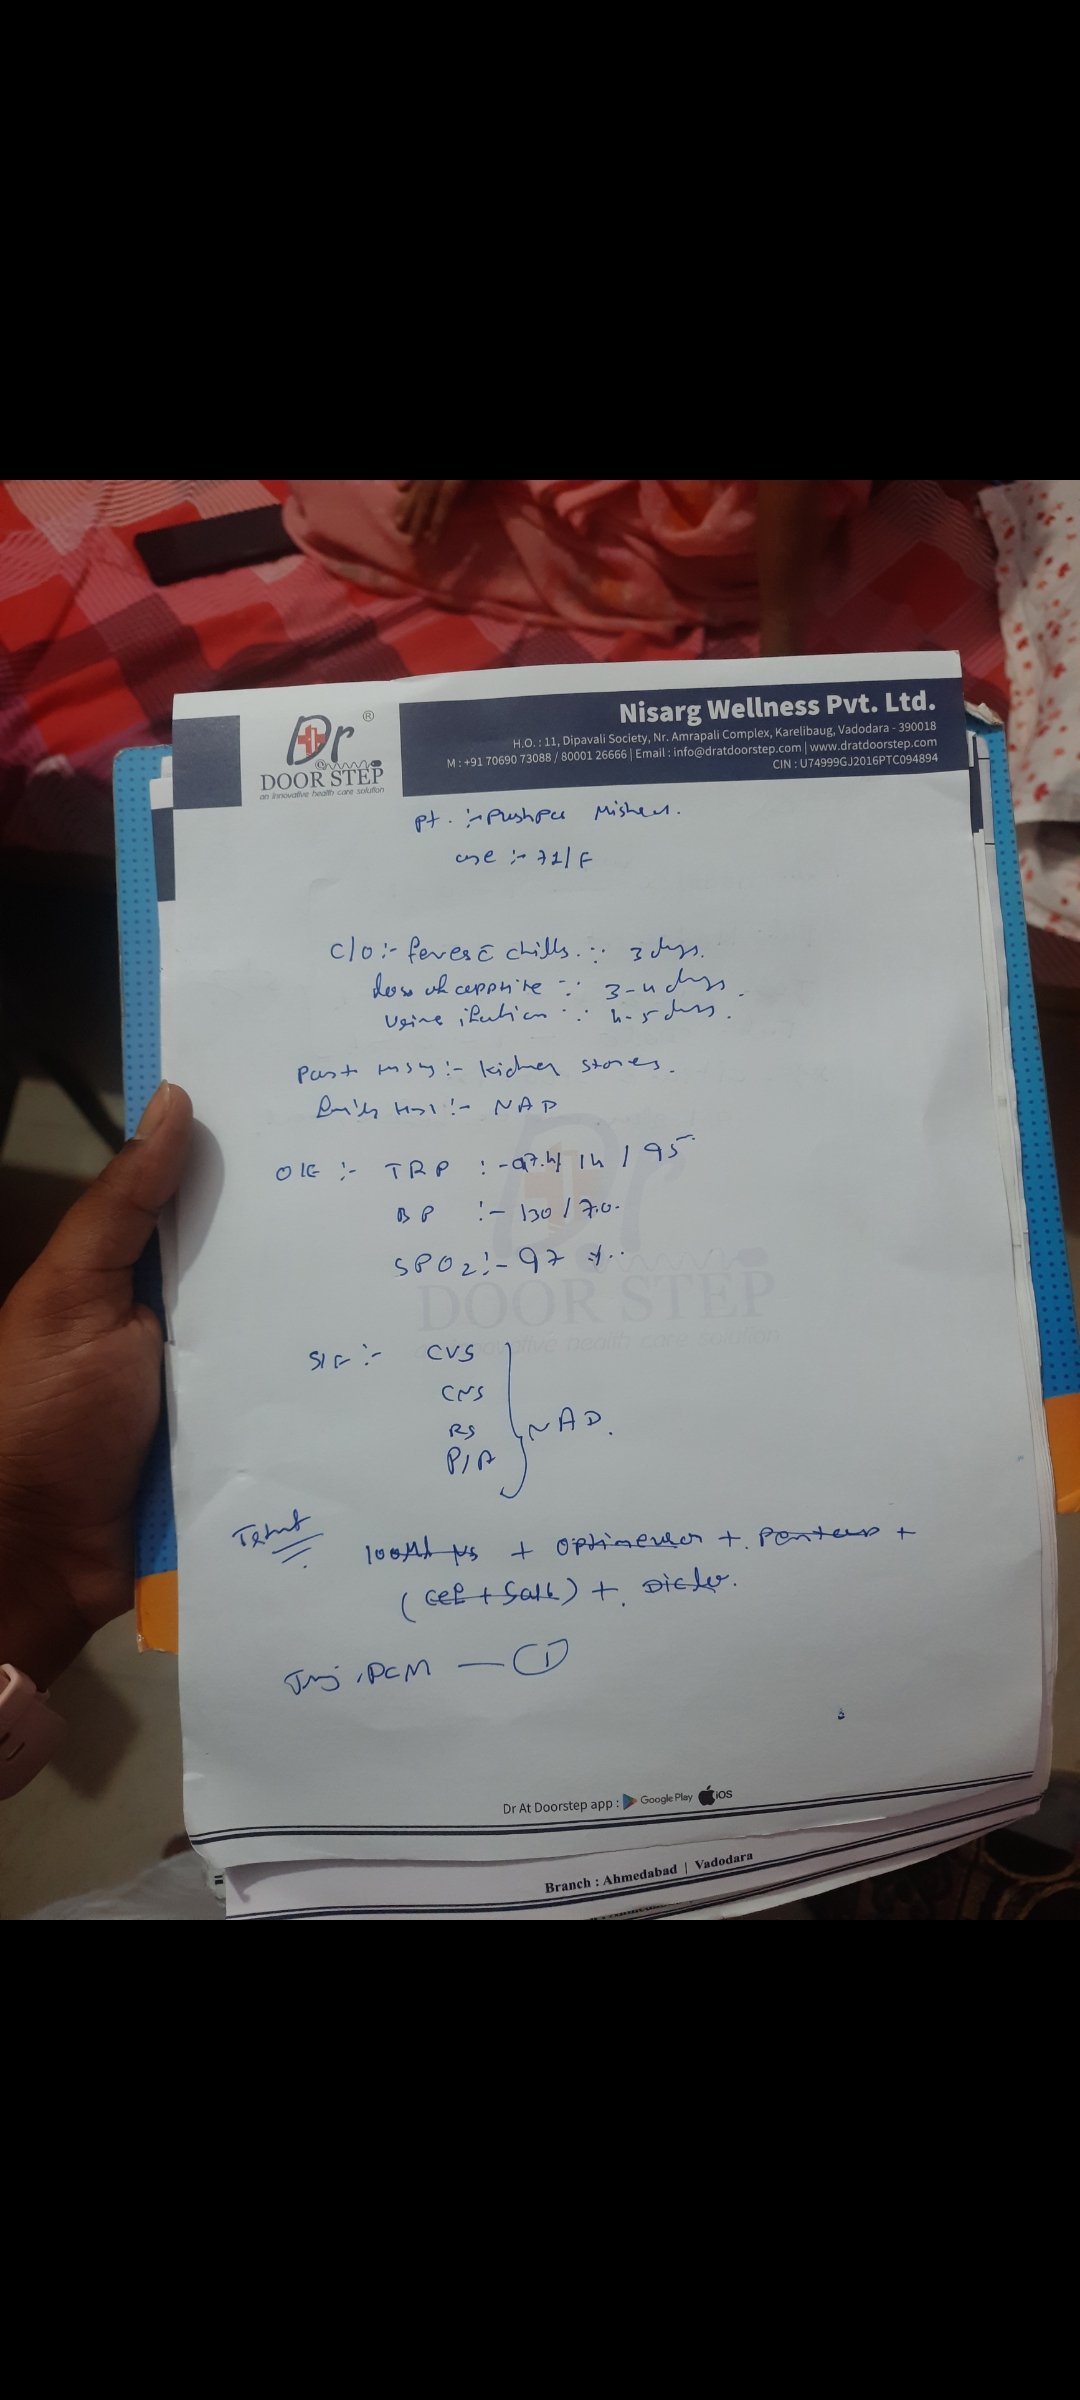 Dr ®
DOOR STEP
an innovative health care solution
Nisarg Wellness Pvt. Ltd.
H.O. : 11, Dipavali Society, Nr. Amrapali Complex, Karelibaug, Vadodara - 390018
M : +91 70690 73088 / 80001 26666 | Email : info@dratdoorstep.com | www.dratdoorstep.com
CIN : U74999GJ2016PTC094894
Pt. :- Pushpa
age :- 71/F
C/O :- fever c̄ chills. 3 days.
loss of appetite 3-4 days.
urine 4-5 days.
Past :- kidney stones.
:- NAD
O/E :- TRP :- 97.4 / 14 / 95
BP :- 130 / 70.
SPO2 :- 97 %.
DOOR STEP
an innovative health care solution
S/E :- CVS
CNS
RS
P/A
NAD.
100ml NS + + +
( + ) +
Inj. PCM — 1
Dr At Doorstep app : Google Play iOS
Branch : Ahmedabad | Vadodara